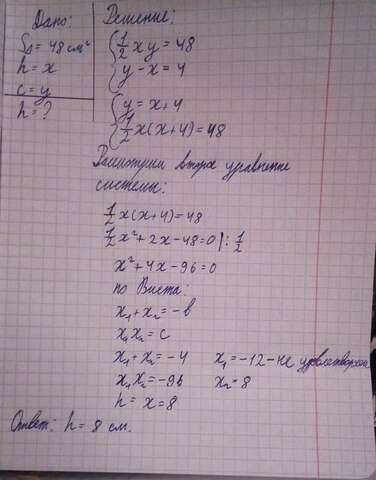 Дано:
S∆ = 48 см²
h = x
c = y
h = ?
Решение:
{ 1/2 xy = 48
{ y - x = 4
{ y = x + 4
{ 1/2 x(x+4) = 48
Рассмотрим второе уравнение
системы:
1/2 x(x+4) = 48
1/2 x² + 2x - 48 = 0 | : 1/2
x² + 4x - 96 = 0
по Виета:
x₁ + x₂ = -b
x₁x₂ = c
x₁ + x₂ = -4 x₁ = -12 - не
x₁x₂ = -96 x₂ = 8
h = x = 8
Ответ: h = 8 см.